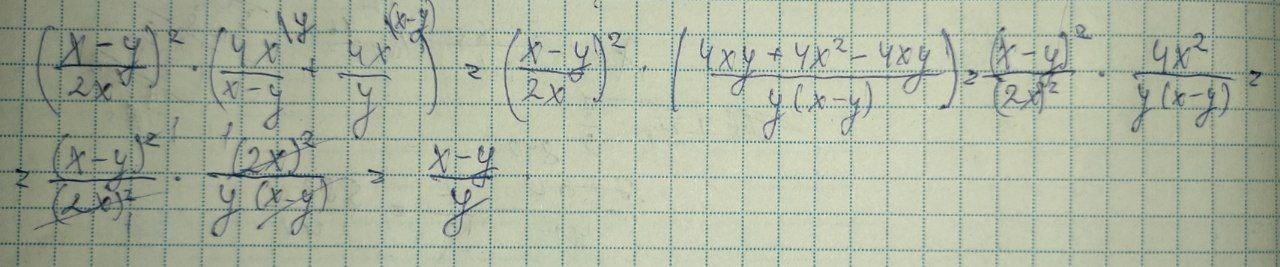 ((x-y)/(2x))² · (4x/(x-y) \y + 4x/y \(x-y)) = ((x-y)/(2x))² · ((4xy+4x²-4xy)/(y(x-y))) = (x-y)²/(2x)² · 4x²/(y(x-y)) =
= (x-y)²/(2x)² · (2x)²/(y(x-y)) = (x-y)/y